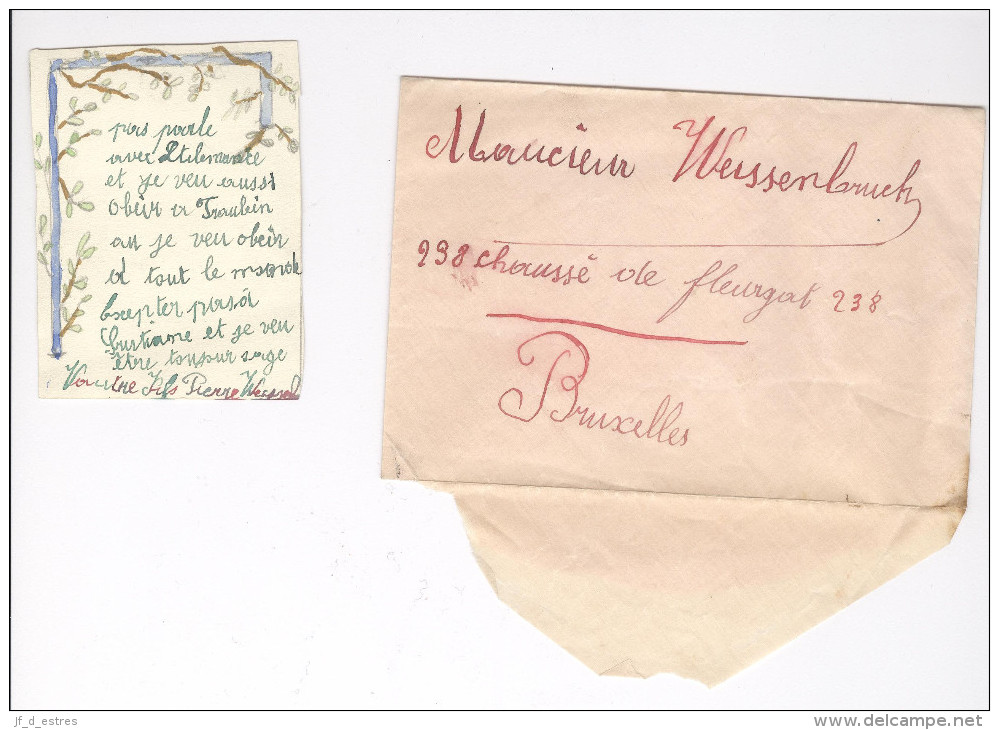 pas parle
avec
et je veu aussi
obeir a
au je veu obeir
a tout le monde
exepter pas a
et je veu
être toujour sage
Vautre Fils Pierre Weissen
Maucieur Weissenbruch
238 chaussé de fleurgat 238
Bruxelles
jf_d_estres
www.delcampe.net